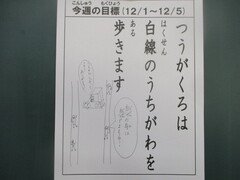 こんしゅう もくひょう
今週の目標(12/1〜12/5)
つうがくろは
はくせん
白線のうちがわを
ある
歩きます